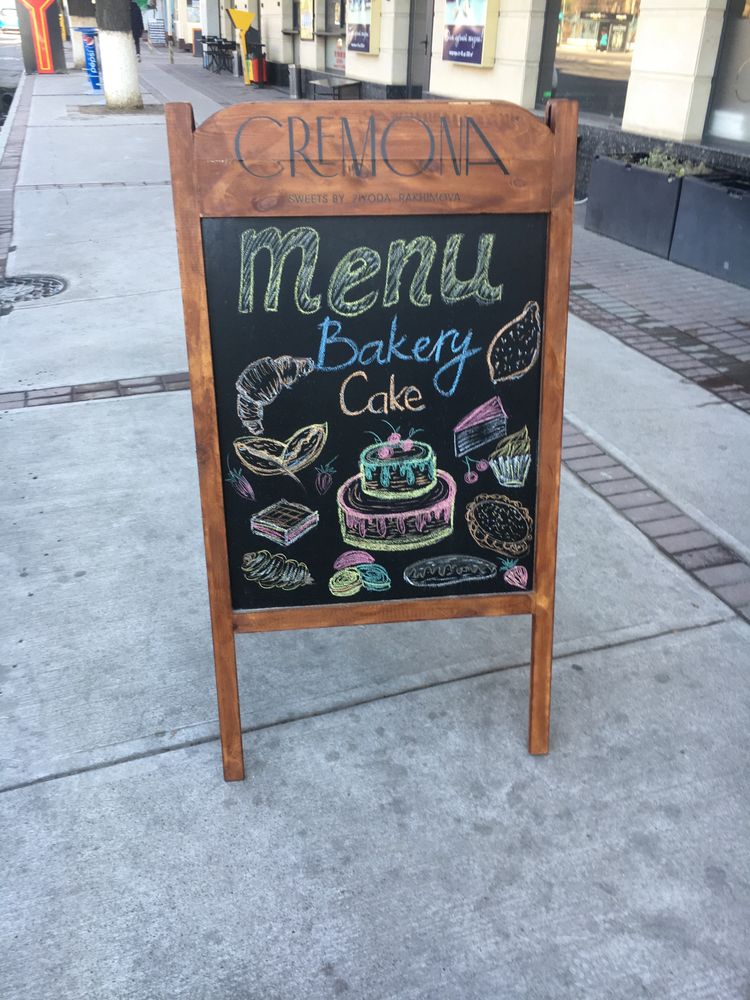 CREMONA
SWEETS BY ZIYODA RAKHIMOVA
menu
Bakery
Cake
pepsi